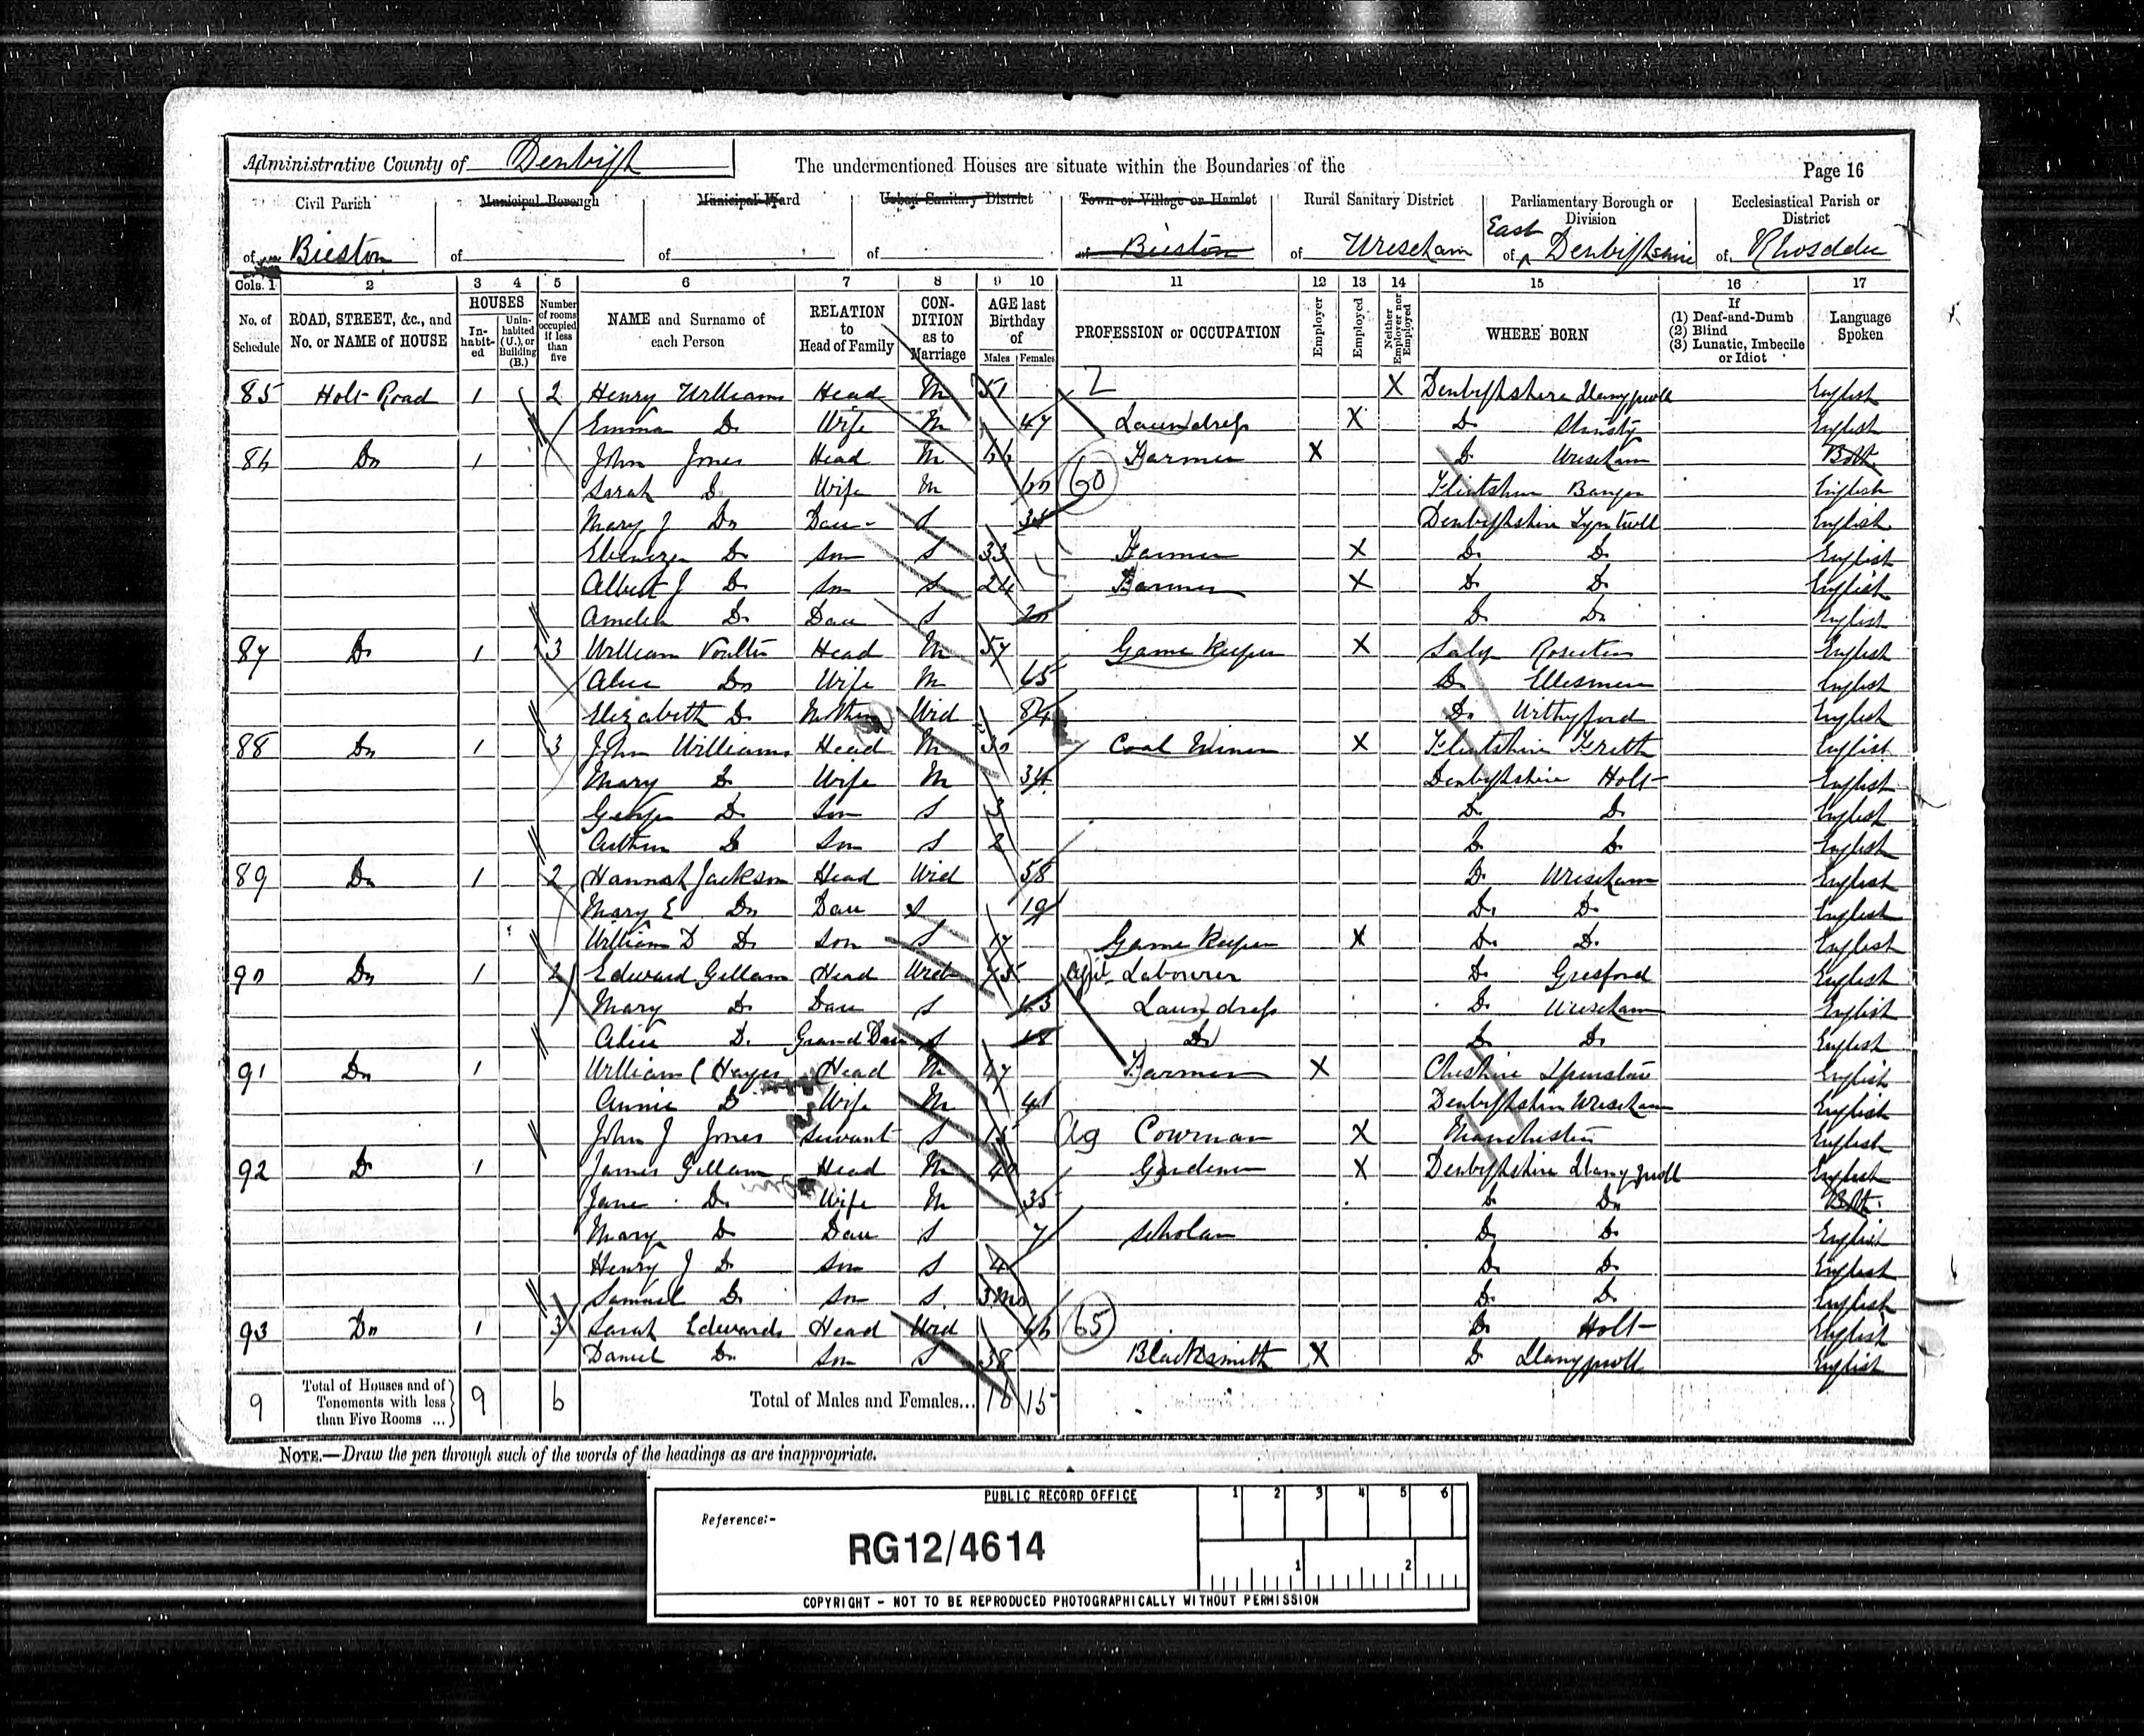 Administrative County of Denbigh The undermentioned Houses are situate within the Boundaries of the Page 16
Civil Parish Municipal Borough Municipal Ward Urban Sanitary District Town or Village or Hamlet Rural Sanitary District Parliamentary Borough or Division Ecclesiastical Parish or District
of Bieston of of of of Bieston of Wrexham of East Denbighshire of Rhosddu
Cols. 1 2 3 4 5 6 7 8 9 10 11 12 13 14 15 16 17
No. of Schedule ROAD, STREET, &c., and No. or NAME of HOUSE HOUSES Inhabited Uninhabited (U.), or Building (B.) Number of rooms occupied if less than five NAME and Surname of each Person RELATION to Head of Family CONDITION as to Marriage AGE last Birthday of Males Females PROFESSION or OCCUPATION Employer Employed Neither Employer nor Employed WHERE BORN If (1) Deaf-and-Dumb (2) Blind (3) Lunatic, Imbecile or Idiot Language Spoken
85 Holt Road 1 2 Henry Williams Head M 51 X Denbighshire English
Emma Do Wife M 47 Laundress X Do English
86 Do 1 John Jones Head M 66 Farmer X Do Wrexham Both
Sarah Do Wife M 60 60 Flintshire Bangor English
Mary J Do Dau S Denbighshire English
Ebenezer Do Son S 33 Farmer X Do Do English
Albert J Do Son S 24 Farmer X Do Do English
Amelia Do Dau S 20 Do Do English
87 Do 1 3 William Head M 57 Game Keeper X Salop English
Alice Do Wife M 65 Do Ellesmere English
Elizabeth Do Mother Wid 84 Do English
88 Do 1 3 John Williams Head M 30 Coal Miner X Flintshire English
Mary Do Wife M 34 Denbighshire Holt English
George Do Son S 3 Do Do English
Arthur Do Son S 2 Do Do English
89 Do 1 2 Hannah Jackson Head Wid 58 Do Wrexham English
Mary E Do Dau S 19 Do Do English
William D Do Son S 17 Game Keeper X Do Do English
90 Do 1 2 Edward Gellam Head Wid 75 Agri Labourer Do Gresford English
Mary Do Dau S Laundress Do Wrexham English
Alice Do Grand Dau S 18 Do Do Do English
91 Do 1 William C Hayes Head M 47 Farmer X Cheshire English
Annie Do Wife M 41 Denbighshire Wrexham English
John J Jones Servant S 15 Ag Cowman X Manchester English
92 Do 1 James Gellam Head M 40 Gardener X Denbighshire English
Jane Do Wife M 35 Do Do Both
Mary Do Dau S 7 Scholar Do Do English
Henry J Do Son S 4 Do Do English
Samuel Do Son S 3Mo Do Do English
93 Do 1 3 Sarah Edwards Head Wid 66 65 Do Holt English
Daniel Do Son S 38 Blacksmith X Do English
9 Total of Houses and of Tenements with less than Five Rooms ... 9 6 Total of Males and Females... 16 15
NOTE.—Draw the pen through such of the words of the headings as are inappropriate.
PUBLIC RECORD OFFICE 1 2 3 4 5 6
Reference:-
RG12/4614
1 2
COPYRIGHT - NOT TO BE REPRODUCED PHOTOGRAPHICALLY WITHOUT PERMISSION